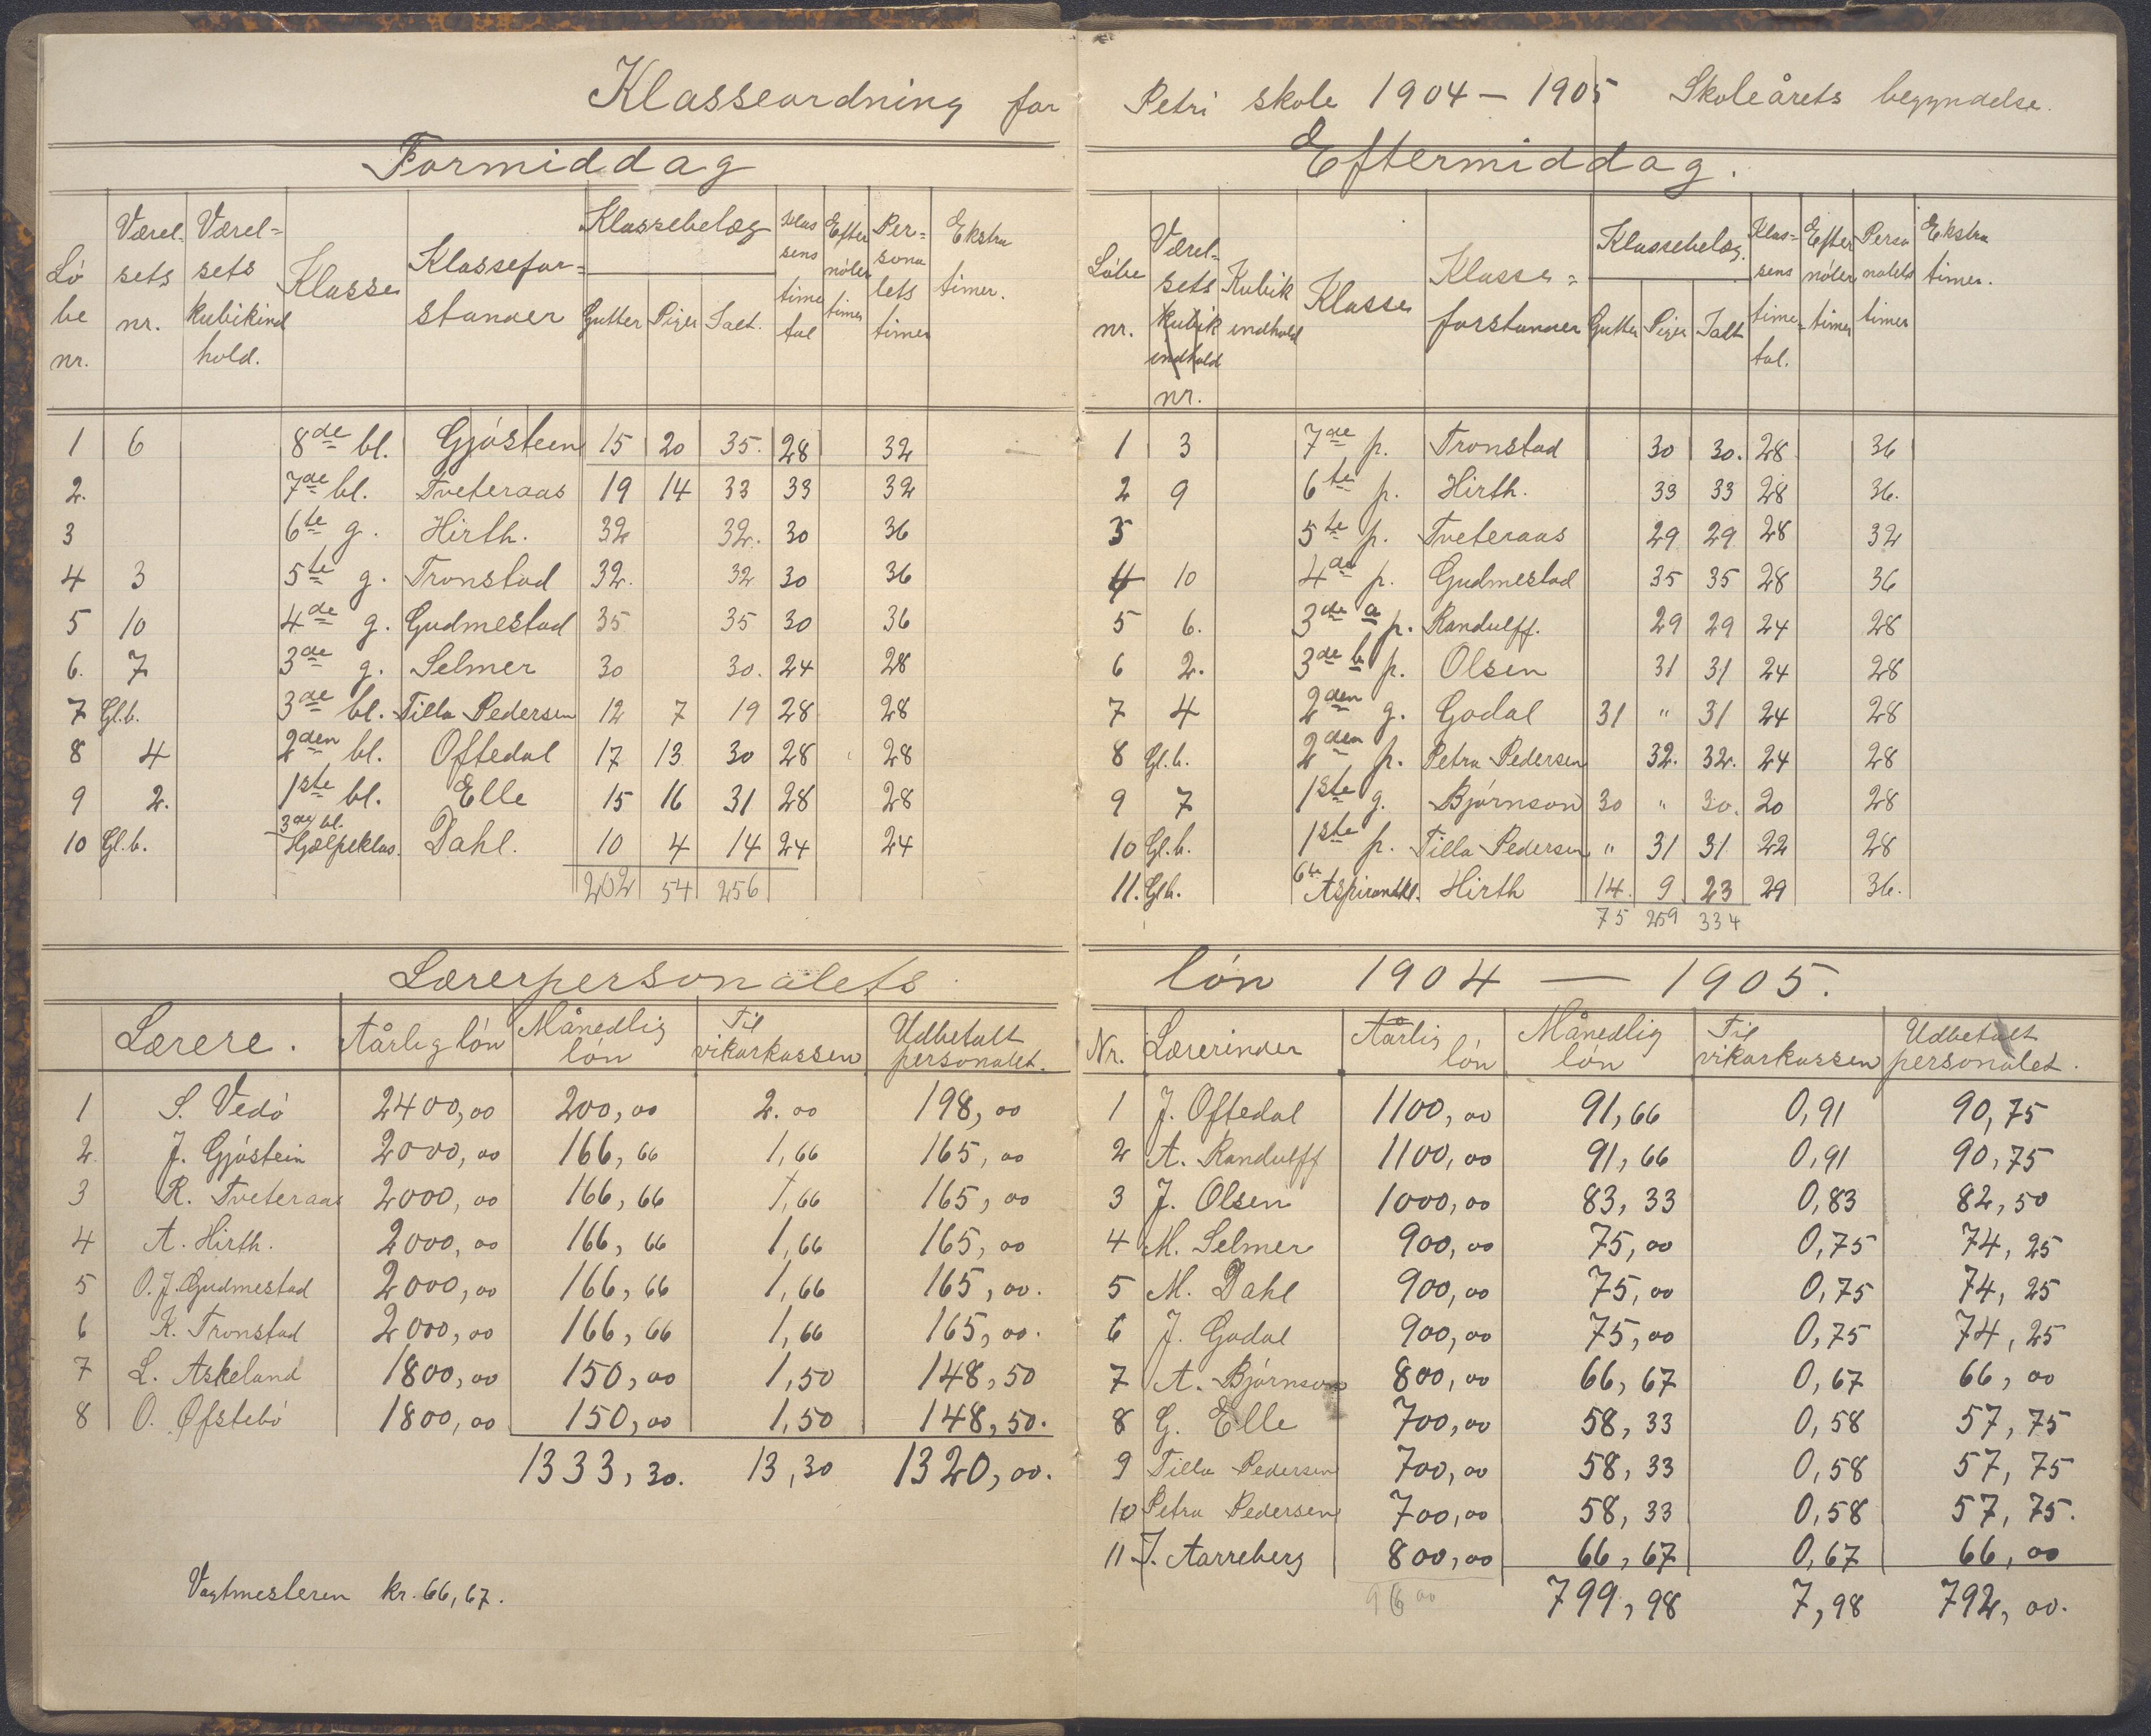 Klasseordning for Petri skole 1904 – 1905 Skoleårets begyndelse.
Formiddag
Lö be nr. | Værel- sets nr. | Værel= sets Kubikind hold. | Klasse | Klassefor= stander | Klassebelæg Gutter Piger Ialt. | Klas sens time tal | Efter nöler timer | Per= sona lets timer | Ekstra timer.
1 6 8de bl. Gjösteen 15 20 35. 28 32
2. 7de bl. Tveteraas 19 14 33 33 32
3 6te g. Hirth. 32 32. 30 36
4 3 5te g. Tronstad 32. 32 30 36
5 10 4de g. Gudmestad 35 35 30 36
6. 7 3de g. Selmer 30 30. 24 28
7 Gl.b. 3de bl. Tilla Pedersen 12 7 19 28 28
8 4 2den bl. Oftedal 17 13 30 28 28
9 2. 1ste bl. Elle 15 16 31 28 28
10 Gl.b. 3de bl. Hjælpeklas. Dahl. 10 4 14 24 24
202 54 256
Eftermiddag.
Löbe nr. | Værel- sets Kubik indhold nr. | Kubik indhold | Klasse | Klasse= forstander | Klassebelæg. Gutter Piger Ialt | Klas= sens time- tal. | Efter nöler timer | Perso nalets timer | Ekstra timer.
1 3 7de p. Tronstad 30 30. 28 36
2 9 6te p. Hirth. 33 33 28 36.
3 5te p. Tveteraas 29 29 28 32
4 10 4de p. Gudmestad 35 35 28 36
5 6. 3de a p. Randulff. 29 29 24 28
6 2. 3de b p. Olsen 31 31 24 28
7 4 2den g. Godal 31 " 31 24 28
8 Gl.b. 2den p. Petra Pedersen 32. 32. 24 28
9 7 1ste g. Bjørnson 30 " 30. 20 28
10 Gl.b. 1ste p. Tilla Pedersen " 31 31 22 28
11. Gl.b. 6te Aspirantkl. Hirth 14. 9 23 29 36.
75 259 334
Lærerpersonalets lön 1904 — 1905.
Lærere. | Aårlig lön | Månedlig lön | Til vikarkassen | Udbetalt personalet.
1 S. Vedö 2400,00 200,00 2.00 198,00
2. J. Gjöstein 2000,00 166,66 1,66 165,00
3 R. Tveteraas 2000,00 166,66 1,66 165,00
4 A. Hirth. 2000,00 166,66 1,66 165,00
5 O.J. Gudmestad 2000,00 166,66 1,66 165,00.
6 K. Tronstad 2000,00 166,66 1,66 165,00.
7 L. Askeland 1800,00 150,00 1,50 148,50
8 O. Øfstebö 1800,00 150,00 1,50 148,50.
1333,30. 13,30 1320,00.
Vagtmesteren kr. 66,67.
Nr. | Lærerinder | Aårlig lön | Månedlig lön | Til vikarkassen | Udbetalt personalet.
1 J. Oftedal 1100,00 91,66 0,91 90,75
2 A. Randulff 1100,00 91,66 0,91 90,75
3 J. Olsen 1000,00 83,33 0,83 82,50
4 M. Selmer 900,00 75,00 0,75 74,25
5 M. Dahl 900,00 75,00 0,75 74,25
6 J. Godal 900,00 75,00 0,75 74,25
7 A. Bjørnson 800,00 66,67 0,67 66,00
8 G. Elle 700,00 58,33 0,58 57,75
9 Tilla Pedersen 700,00 58,33 0,58 57,75
10 Petra Pedersen 700,00 58,33 0,58 57,75.
11 J. Aarreberg 800,00 66,67 0,67 66,00
9600 799,98 7,98 792,00.